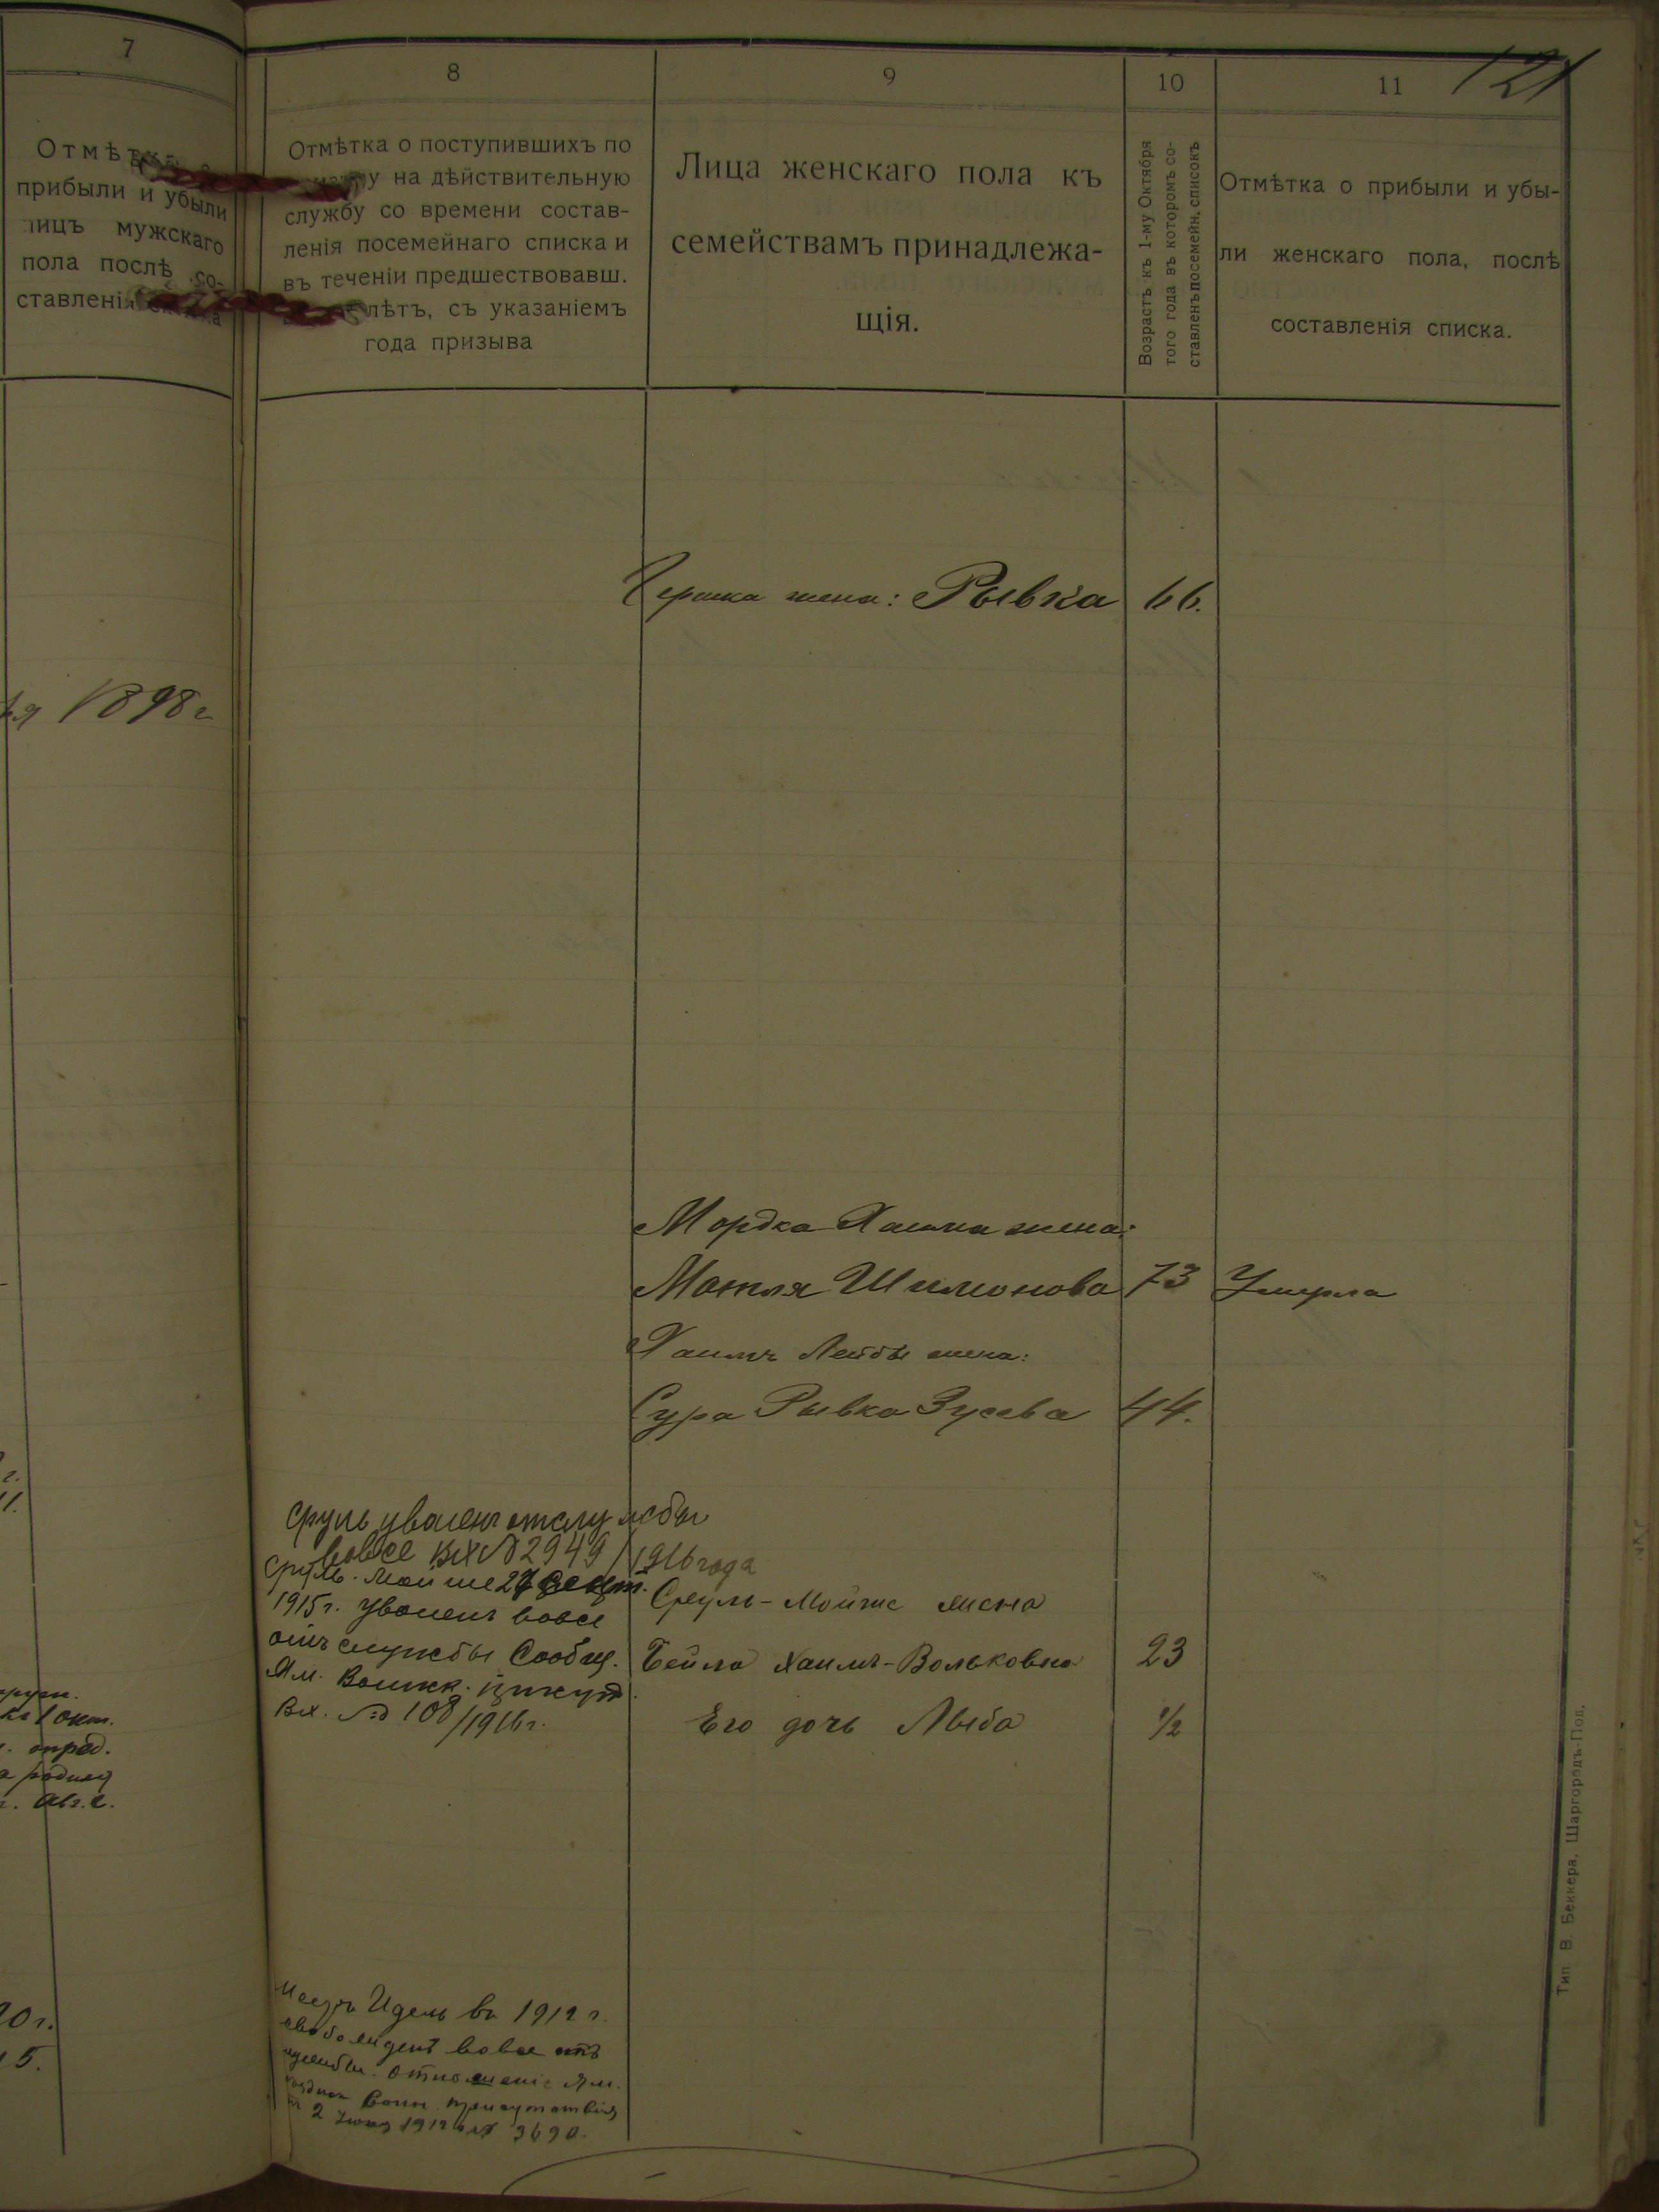 7
Отмѣтка о
прибыли и убыли
лицъ мужскаго
пола послѣ со-
ставленія списка
1898 г
1 окт.
8
Отмѣтка о поступившихъ по
на дѣйствительную
службу со времени состав-
ленія посемейнаго списка и
въ теченіи предшествовавш.
лѣтъ, съ указаніемъ
года призыва
Сруль уволенъ отъ службы
вовсе вх № 2949/1916 года
Сруль-Мойше 27
1915 г. уволенъ вовсе
отъ службы Сообщ.
Ям. Воинск. присут.
Вх. № 108/1916 г.
Идель въ 1912 г.
вовсе отъ
службы. отношеніе Ям.
воин. присутствія
2 1912 № 3690.
9
Лица женскаго пола къ
семействамъ принадлежа-
щія.
Гершка жена: Рывка
Мордка Хаима жена:
Мотля Шимонова
Хаимъ Лейбы жена:
Сура Рывка Зусева
Сруль-Мойше жена
Бейла Хаимъ-Вольковна
Его дочь Лыба
10
Возрастъ къ 1-му Октября
того года въ которомъ со-
ставленъ посемейн. списокъ
66.
73
44.
23
1/2
11
121
Отмѣтка о прибыли и убы-
ли женскаго пола, послѣ
составленія списка.
Умерла
Тип. В. Беккера, Шаргородъ-Под.